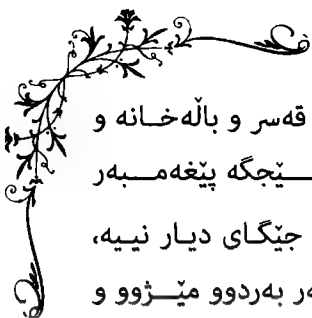 قەسر و باڵەخـانە و
ـێجگە پێغەمـبەر
جێگـای دیـار نییـە،
ەر بەردوو مێـژوو و